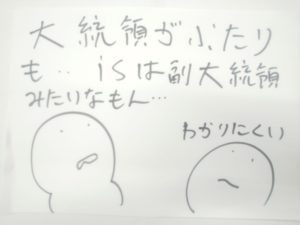 大統領がふたり
も‥isは副大統領
みたいなもん…
わかりにくい